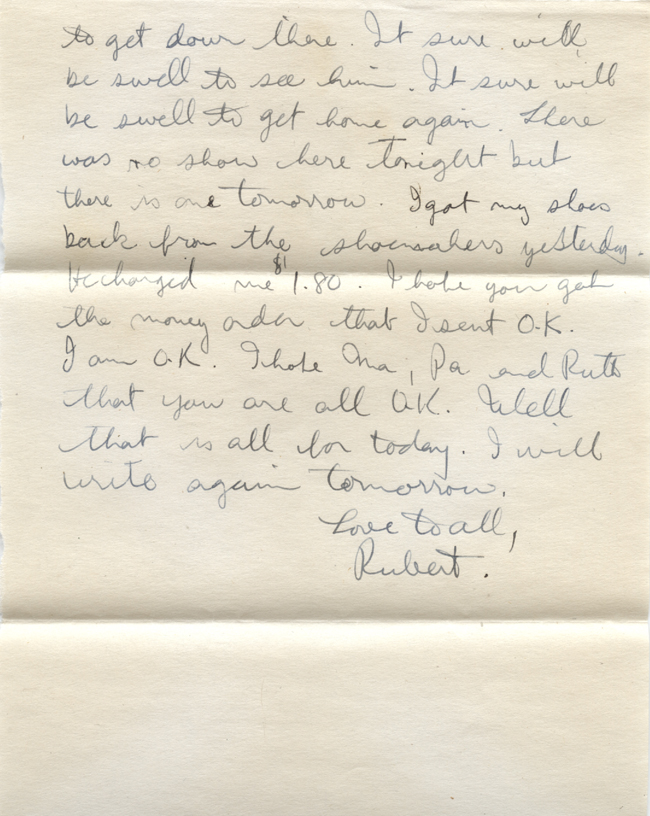 to get down there. It sure will
be swell to see him. It sure will
be swell to get home again. There
was no show here tonight but
there is one tomorrow. I got my shoes
back from the shoemakers yesterday.
He charged me $1.80. I hope you get
the money order that I sent O.K.
I am O.K. I hope Ma, Pa and Ruth
that you are all O.K. Well
that is all for today. I will
write again tomorrow.
Love to all,
Rubert.